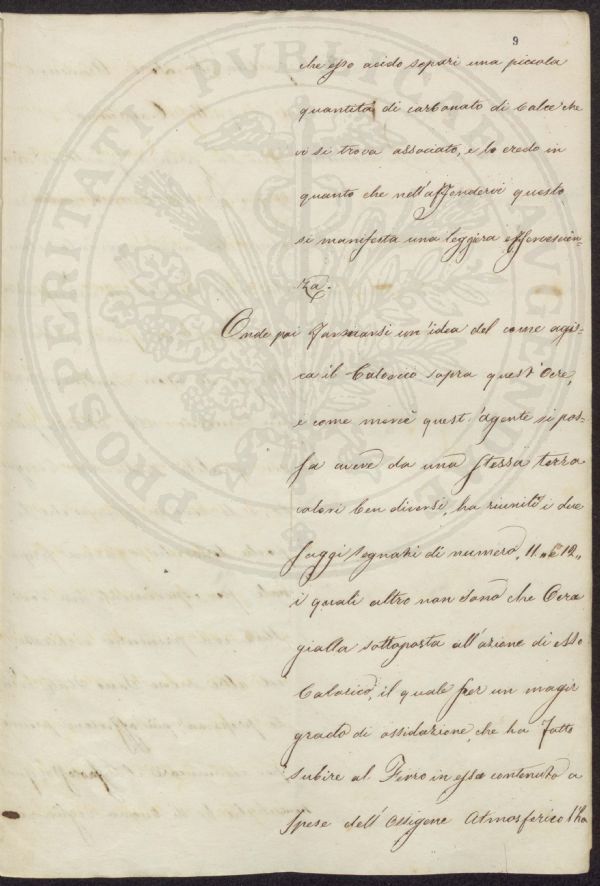 9
che esso acido separi una piccola
quantità di carbonato di Calce che
vi si trova associato, e lo credo in
quanto che nell'affondervi questo
si manifesta una leggiera effervescien-
za.
Onde poi formarsi un'idea del come agis-
ca il Calorico sopra quest'Ocre,
e come mercè quest'agente si pos-
sa avere da una stessa terra
colori ben diversi, ha riuniti i due
saggi segnati di numero „11„ e 12„
i quali altro non sono che Ocra
gialla sottoposta all'azione di esso
Calorico, il quale per un magir
grado di ossidazione, che ha fatto
subire al Ferro in essa contenuto a
spese dell'Ossigene Atmosferico l'ha
PROSPERITATI PUBLICAE AUGENDAE